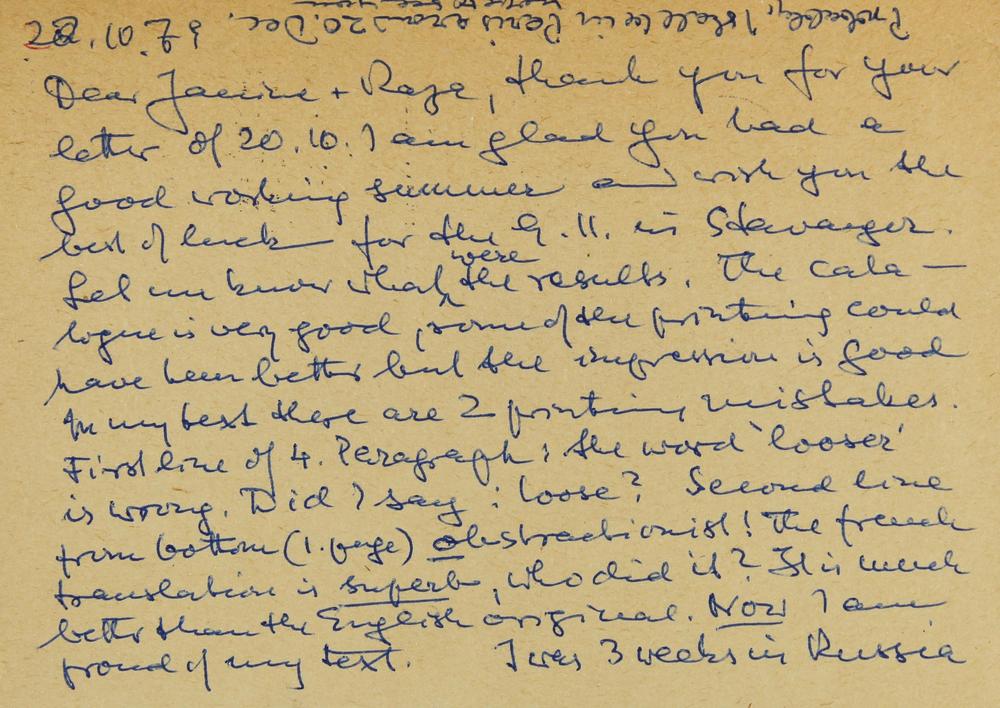 Probably, I shall be in Paris around 20. Dec.
Dear Janine + Raza, thank you for your
letter of 20.10. I am glad you had a
good working summer and wish you the
best of luck for the 9.11. in Stavanger.
Let me know what were the results. The cata-
logue is very good, some of the printing could
have been better but the impression is good
In my text there are 2 printing mistakes.
First line of 4. Paragraph: the word 'looser'
is wrong. Did I say: loose? Second line
from bottom (1. page) obstractionist! The french
translation is superb, who did it? It is much
better than the English original. Now I am
proud of my text. I was 3 weeks in Russia